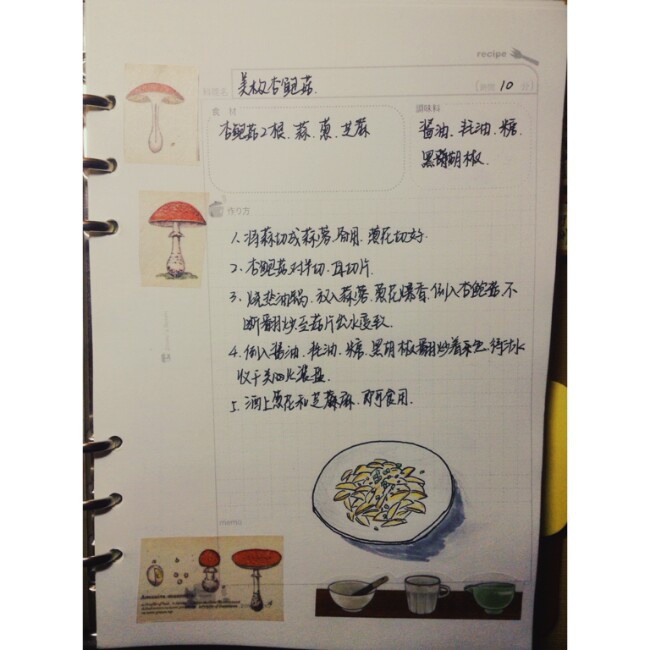 recipe
美极杏鲍菇.
10 分
食材
調味料
杏鲍菇2根、蒜、葱、芝麻
酱油、耗油、糖、
黑胡椒.
作り方
1、将蒜切成蒜蓉备用. 葱花切好.
2、杏鲍菇对半切,再切片.
3、烧热油锅、放入蒜蓉、葱花爆香,倒入杏鲍菇,不
断翻炒至菇片出水变软.
4、倒入酱油、耗油、糖、黑胡椒翻炒着色,待汁水
收干关火装盘.
5、洒上葱花和芝麻,即可食用.
memo